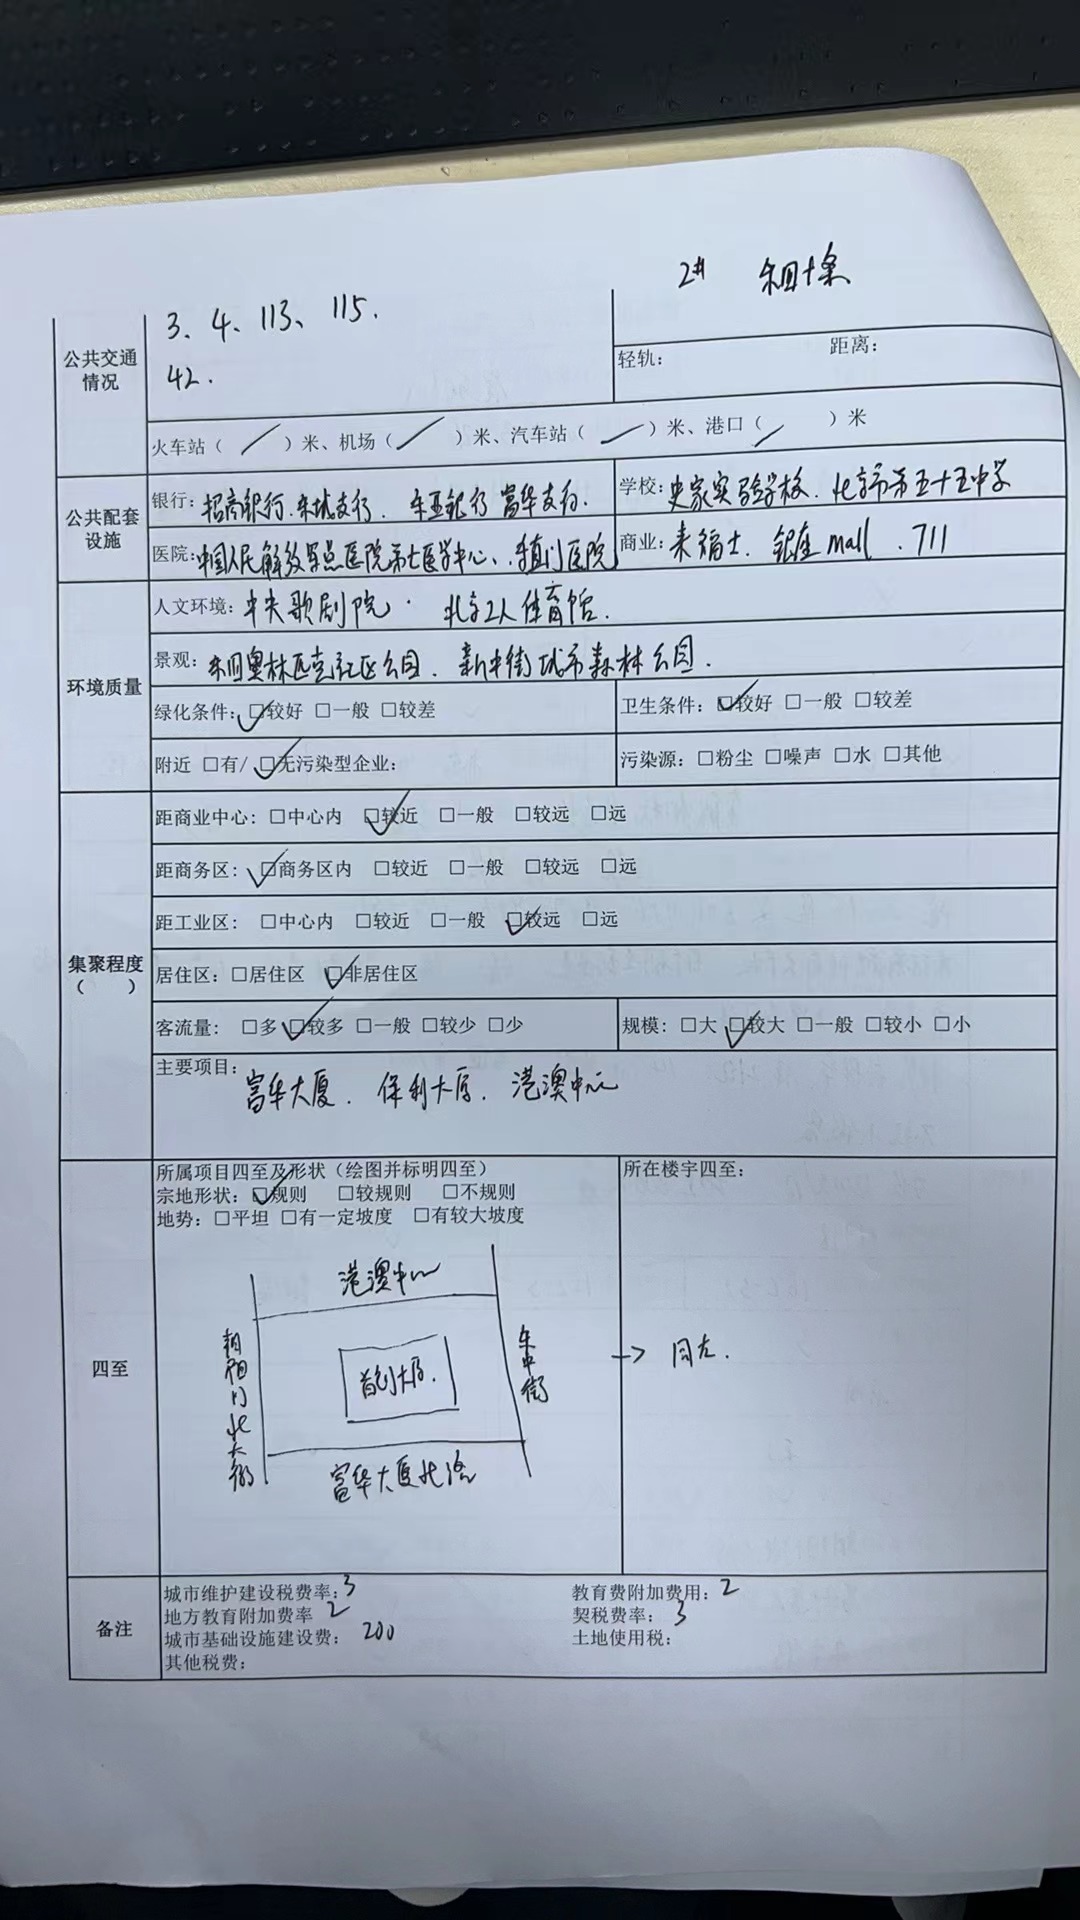 2# 东四十条
3、4、113、115.
公共交通
情况
42.
轻轨: 距离:
火车站( / )米、机场( / )米、汽车站( / )米、港口( / )米
公共配套
设施
银行: 招商银行.东城支行. 东亚银行富华支行.
学校: 史家实验学校. 北京市第五十五中学
医院: 中国人民解放军总医院第七医学中心、.东直门医院
商业: 来福士. 银座mall . 711
环境质量
人文环境: 中央歌剧院. 北京工人体育馆.
景观: 东四奥林匹克社区公园. 新中街城市森林公园.
绿化条件: ☑较好 □一般 □较差
卫生条件: ☑较好 □一般 □较差
附近 □有/ ☑无污染型企业:
污染源: □粉尘 □噪声 □水 □其他
集聚程度
( )
距商业中心: □中心内 ☑较近 □一般 □较远 □远
距商务区: ☑商务区内 □较近 □一般 □较远 □远
距工业区: □中心内 □较近 □一般 ☑较远 □远
居住区: □居住区 ☑非居住区
客流量: □多 ☑较多 □一般 □较少 □少
规模: □大 ☑较大 □一般 □较小 □小
主要项目: 富华大厦. 保利大厦. 港澳中心
四至
所属项目四至及形状(绘图并标明四至)
宗地形状: ☑规则 □较规则 □不规则
地势: □平坦 □有一定坡度 □有较大坡度
所在楼宇四至:
港澳中心
朝阳门北大街
首创大厦.
东中街
富华大厦北路
→ 同左.
备注
城市维护建设税费率: 3
教育费附加费用: 2
地方教育附加费率 2
契税费率: 3
城市基础设施建设费: 200
土地使用税:
其他税费: